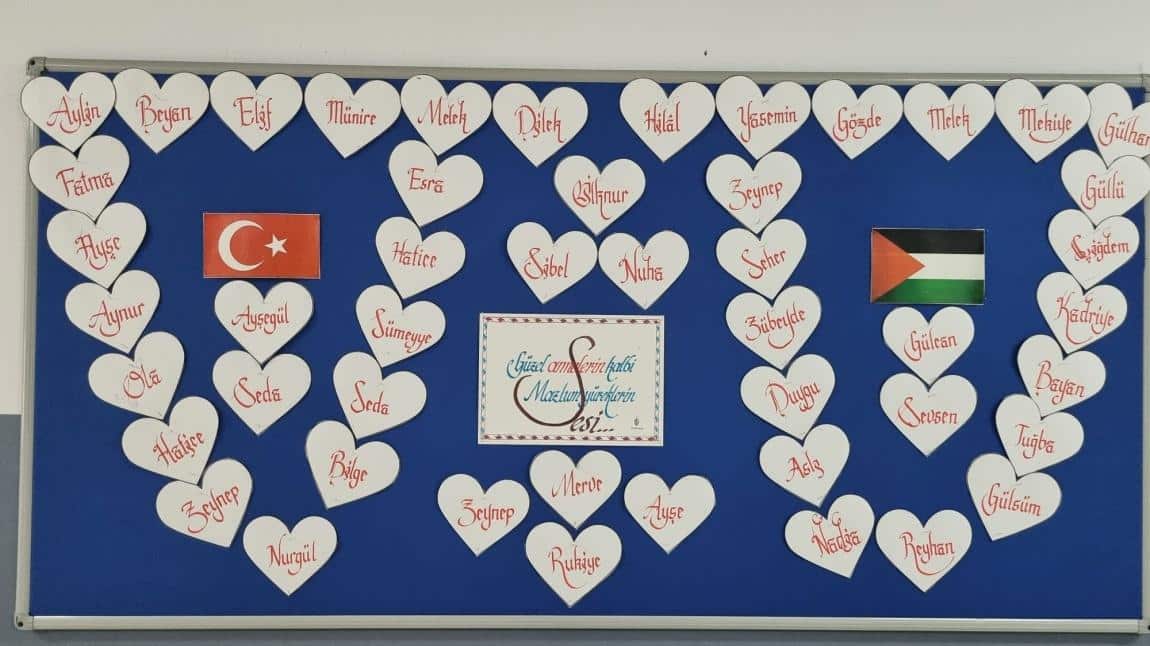 Aylin Beyan Elif Münire Melek Dilek Hilâl Yasemin Gözde Melek Mekiye Gülhan
Fatma Esra İlknur Zeynep Güllü
Ayşe Hatice Sibel Nuha Seher Çiğdem
Aynur Ayşegül Sümeyye Zübeyde Gülcan Kadriye
Güzel annelerin kalbi
Mazlum yüreklerin
Sesi...
Ola Seda Seda Duygu Sevsen Bayan
Hatice Bilge Asiz Tuğba
Zeynep Zeynep Merve Ayşe Gülsüm
Nurgül Rukiye Nadia Reyhan